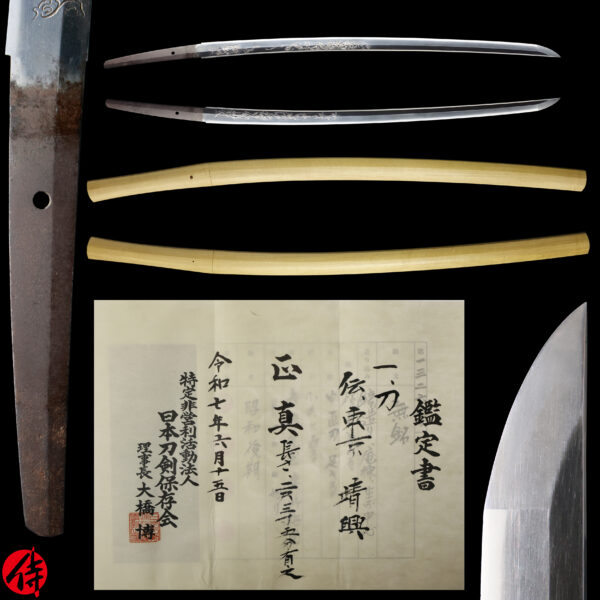 鑑定書
一、刀
伝東京 靖興
正真 長さ、二六三十五分有之
令和七年六月十五日
特定非営利活動法人
日本刀剣保存会
理事長 大橋 博
侍